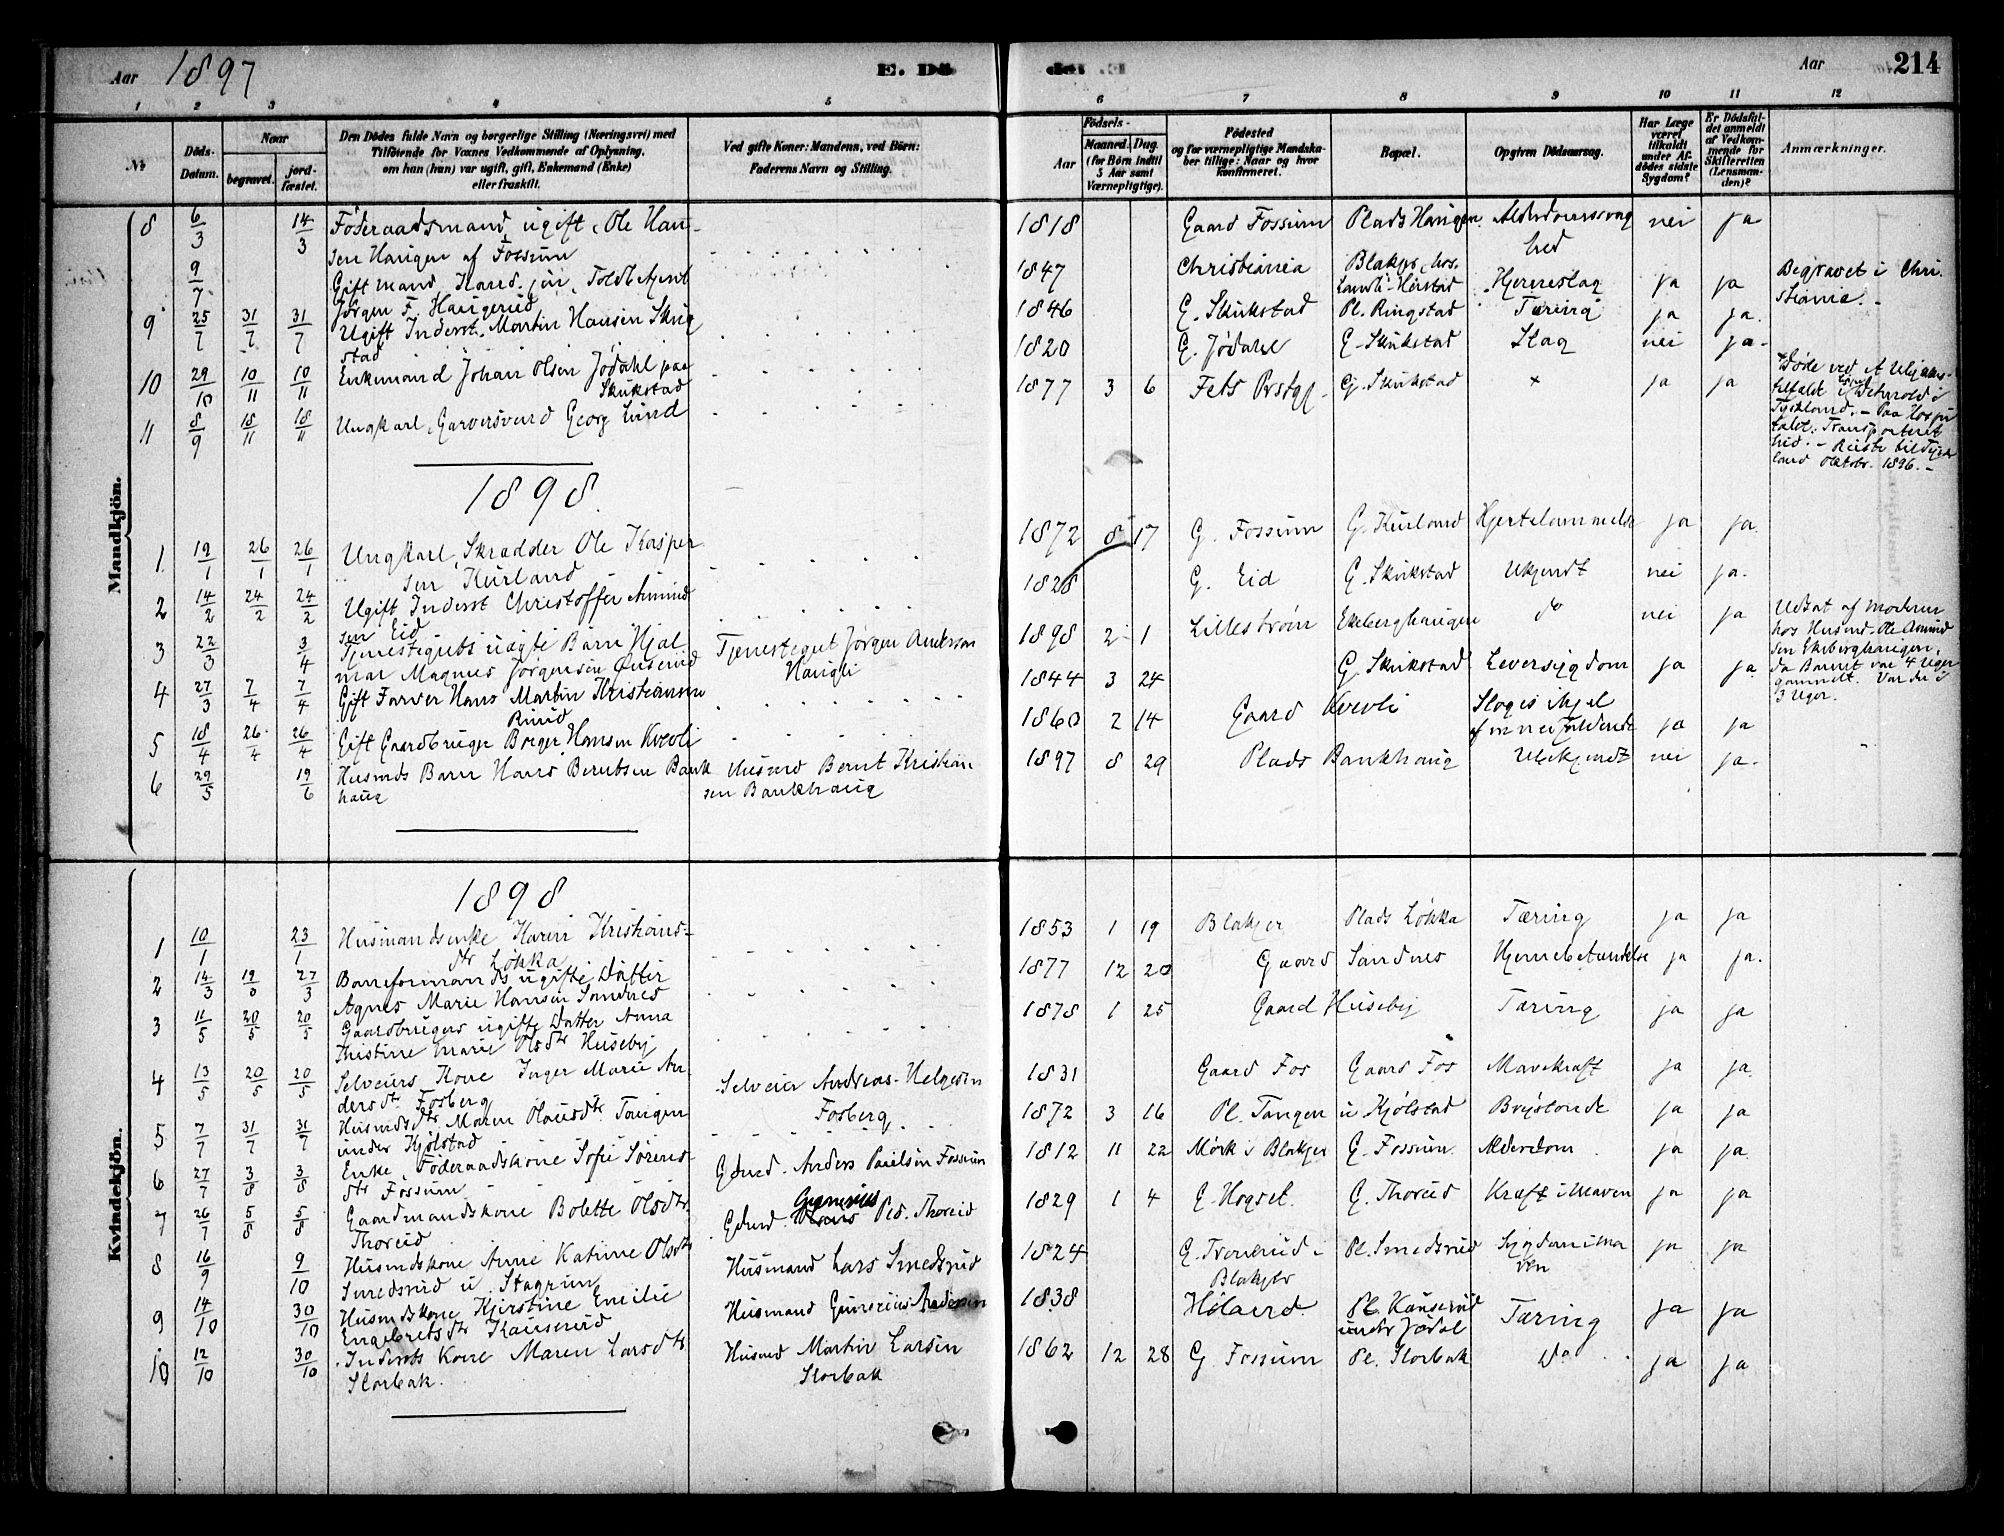 Aar 1897
E. Dö
E. Dö
Aar
214
1 2 3 4 5 6 7 8 9 10 11 12
No
Döds-
Datum.
Naar
begravet.
jord-
fæstet.
Den Dödes fulde Navn og borgerlige Stilling (Næringsvei) med
Tilföiende for Voxnes Vedkommende af Oplysning,
om han (hun) var ugift, gift, Enkemand (Enke)
eller fraskilt.
Ved gifte Koner: Mandens, ved Börn:
Faderens Navn og Stilling.
Födsels-
Aar
Maaned. Dag.
(for Börn indtil
5 Aar samt
Værnepligtige).
Födested
og for værnepligtige Mandska-
ber tillige: Naar og hvor
konfirmeret.
Bopæl.
Opgiven Dödsaarsag.
Har Læge
været
tilkaldt
under Af-
dödes sidste
Sygdom?
Er Dödsfal-
det anmeldt
af Vedkom-
mende for
Skifteretten
(Lensman-
den)?
Anmærkninger.
Mandkjön.
8 6/3 14/3 Föderaadsmand, ugift, Ole Han-
sen Haugen af Fossum
1818 Gaard Fossum Plads Haugen Alderdomssvag
hed nei ja
9/7 Gift mand, Kand. jur, Toldb
Jørgen F. Haugerud
1847 Christiania Blakjer, hos
Hjerneslag ja ja Begravet i Chri
stiania.
9 25/7 31/7 31/7 Ugift Inderst. Martin Hansen Skug
stad
1846 G. Skukstad Pl. Ringstad Tæring ja ja.
10 29/10 10/11 10/11 Enkemand Johan Olsen Jødahl paa
Skukstad
1820 G. Jødahl G. Skukstad Slag nei ja.
11 8/9 18/11 18/11 Ungkarl, Garversvend Georg Lund
1877 3 6 Fets Prstgj. G. Skukstad + ja ja
+ Døde ved et Ulykkes-
tilfælde i Detmold i
Tyskland. - Paa Hospi
talet. Transporteret
hid. - Reiste til Tysk
land Oktobr. 1896. -
1898.
1 19/1 26/1 26/1 Ungkarl, Skrædder Ole Kasper
sen Kurland
1872 8 17 G. Fossum G. Kurland Hjertelammelse ja ja
2 14/2 24/2 24/2 Ugift Inderst Christoffer Amund
sen Eid
1828 G. Eid G. Skukstad Ukjendt nei ja.
3 22/3 3/4 Tjenesteguts uægte Barn Hjal
mar Magnus Jørgensen
Tjenestegut Jørgen Andersen
Haugli
1898 2 1 Lillestrøm Ekeberghaugen do nei ja
Udsat af moderen
hos Husmd. Ole Amund
sen Ekeberghaugen,
da Barnet var 4 Uger
gammelt. Var der i
3 Uger.
4 27/3 7/4 7/4 Gift Farver Hans Martin Kristiansen
Rud
1844 3 24 G. Skukstad Leversygdom ja ja
5 18/4 26/4 26/4 Gift Gaardbruger Borger Hansen Kvevli
1860 2 14 Gaard Kvevli Sloges ihjel
af en nedfaldende ja ja
6 29/5 19/6 Husmds Barn Hans Berntsen Bank
haug
Husmd Bernt Kristian
sen Bankhaug
1897 8 29 Plads Bankhaug Ubekjendt nei ja.
Kvindekjön.
1898
1 10/1 23/1 Husmandsenke Karen Kristians-
dtr Løkka
1853 1 19 Blakjer Plads Løkka Tæring ja ja
2 14/3 19/3 27/3 Baneformands ugifte Datter
Agnes Marie Hansen Sandnes
1877 12 20 Gaard Sandnes Hjernebetændelse ja ja.
3 11/5 20/5 20/5 Gaardbrugers ugifte Datter Anna
Kristine Marie Olsdtr Huseby
1878 1 25 Gaard Huseby Tæring ja ja
4 13/5 20/5 20/5 Selveiers Kone Inger Marie An
dersdtr Fosberg
Selveier Andreas Helgesen
Fosberg
1831 Gaard Fos Gaard Fos Mavekræft ja ja
5 7/7 31/7 31/7 Husmdsdtr Maren Olausdtr Tangen
under Kjølstad
1872 3 16 Pl. Tangen u Kjølstad Brystonde ja ja
6 27/7 3/8 3/8 Enke, Føderaadskone Sofie Sørens-
dtr Fossum
Gdmd. Anders Paulsen Fossum
1812 11 22 Mørk i Blakjer G. Fossum Alderdom ja ja
7 26/7 5/8 5/8 Gaardmandskone Bolette Olsdtr
Thorud
Gdmd. Gunerius Ped. Thorud
1829 1 4 G. Hogset G. Thorud Kræft i Maven ja ja
8 16/9 9/10 Husmdskone Anne Katrine Olsdtr
Smedsrud u. Stagrum
Husmand Lars Smedsrud
1824 G. Tronerud i
Blakjer Pl. Smedsrud Sygdom i Ma
ven ja ja
9 14/10 30/10 Husmdskone Kjerstine Emilie
Engebretsdtr Kauserud
Husmand Gunerius Andersen
1838 Høland Pl. Kauserud
under Jødal Tæring ja ja
10 12/10 30/10 Indersts Kone Maren Larsdtr
Storbak.
Husmd Martin Larsen
Storbak
1862 12 28 G. Fossum Pl. Storbak Do ja ja